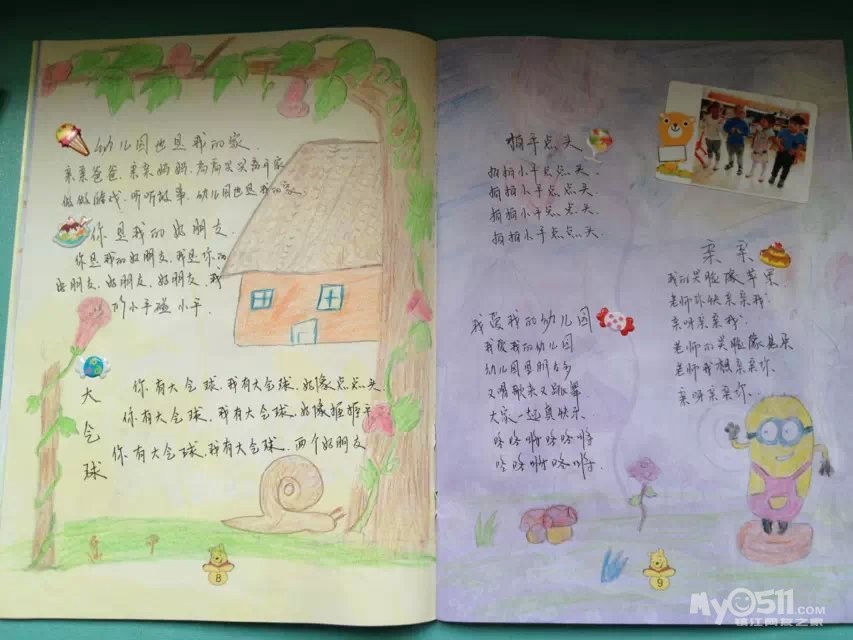 幼儿园也是我的家
亲亲爸爸.亲亲妈妈.高高兴兴离开家
做做游戏.听听故事.幼儿园也是我的家
你是我的好朋友.
你是我的好朋友.我是你的
好朋友.好朋友.好朋友.我
的小手碰小手.
大气球
你有大气球.我有大气球.好像点点头
你有大气球.我有大气球.好像摇摇手
你有大气球.我有大气球.两个好朋友
8
拍手点头
拍拍小手点点头.
拍拍小手点点头.
拍拍小手点点头.
拍拍小手点点头
亲亲
我的笑脸像苹果
老师你快亲亲我.
亲呀亲亲我.
老师的笑脸像
老师我想亲亲你
亲呀亲亲你.
我爱我的幼儿园
我爱我的幼儿园
幼儿园里朋友多
又唱歌来又跳舞
大家一起真快乐.
9
My0511.com
镇江网友之家